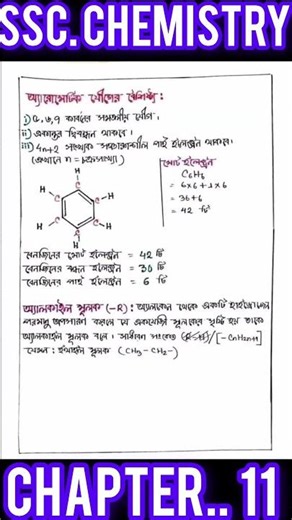 SSC. CHEMISTRY
অ্যারোমেটিক যৌগের বৈশিষ্ট্য :
i) ৫, ৬, ৭ কার্বনের সমতলীয় যৌগ।
ii) একান্তর দ্বিবন্ধন থাকবে।
iii) 4n+2 সংখ্যক সঞ্চারণশীল পাই ইলেকট্রন থাকবে।
(এখানে n = চক্রসংখ্যা)
মোট ইলেকট্রন
C6H6
= 6×6+1×6
= 36+6
= 42 টি
H
H C H
C C
C C
H C H
H
বেনজিনের মোট ইলেকট্রন = 42 টি
বেনজিনের বন্ধন ইলেকট্রন = 30 টি
বেনজিনের পাই ইলেকট্রন = 6 টি
অ্যালকাইল মূলক (-R) : অ্যালকেন থেকে একটি হাইড্রোজেন
পরমাণু অপসারণ করলে যে একযোজী মূলকের সৃষ্টি হয় তাকে
অ্যালকাইল মূলক বলে। সাধারণ সংকেত [-CnH2n+1]
যেমন : ইথাইল মূলক (CH3-CH2-)
CHAPTER.. 11